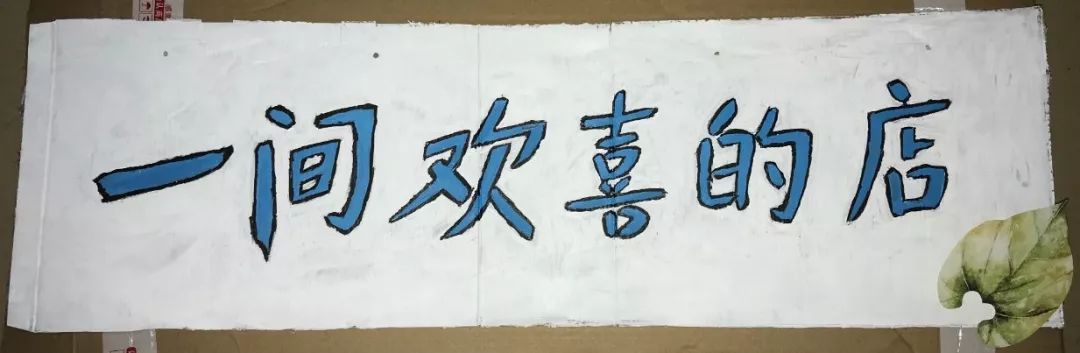 一间欢喜的店